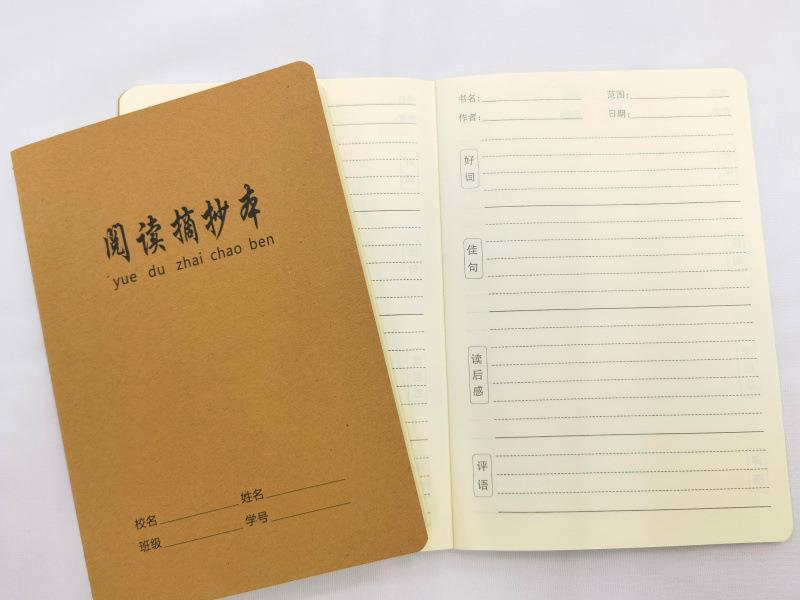 阅读摘抄本
yue du zhai chao ben
校名 姓名
班级 学号
书名: 范围:
作者: 日期:
好词
佳句
读后感
评语